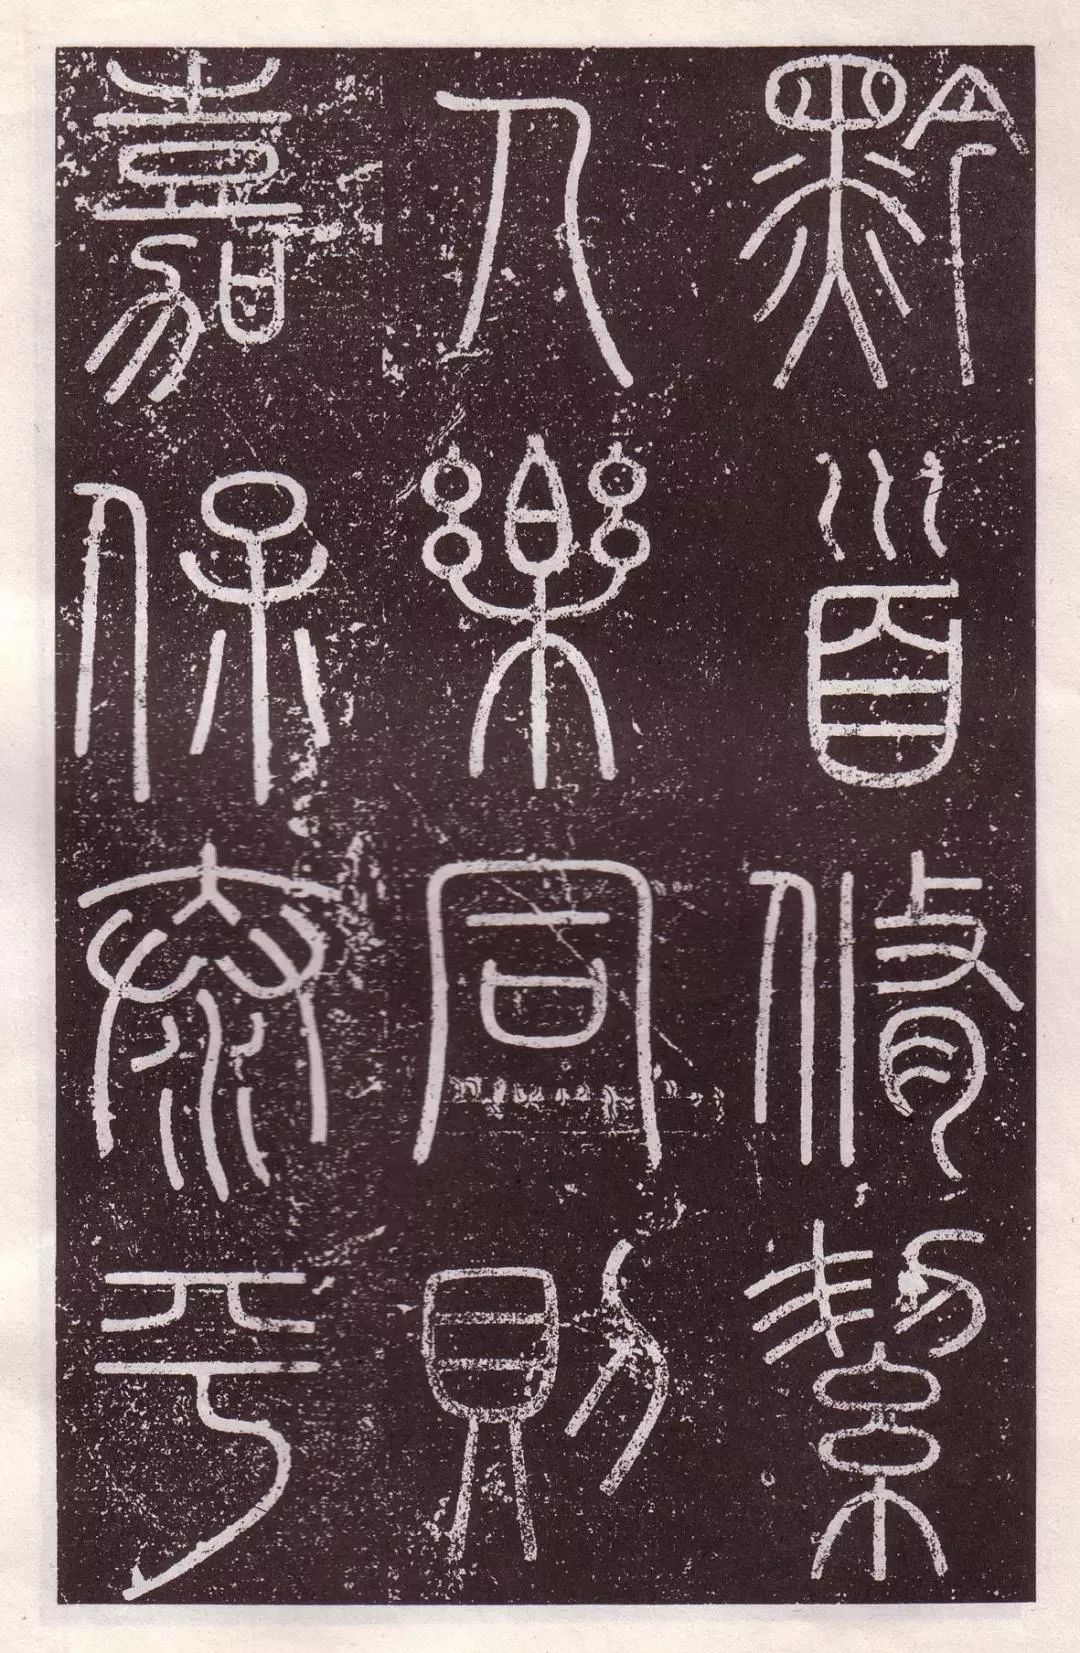 黔首脩絜
人樂同則
嘉保泰平